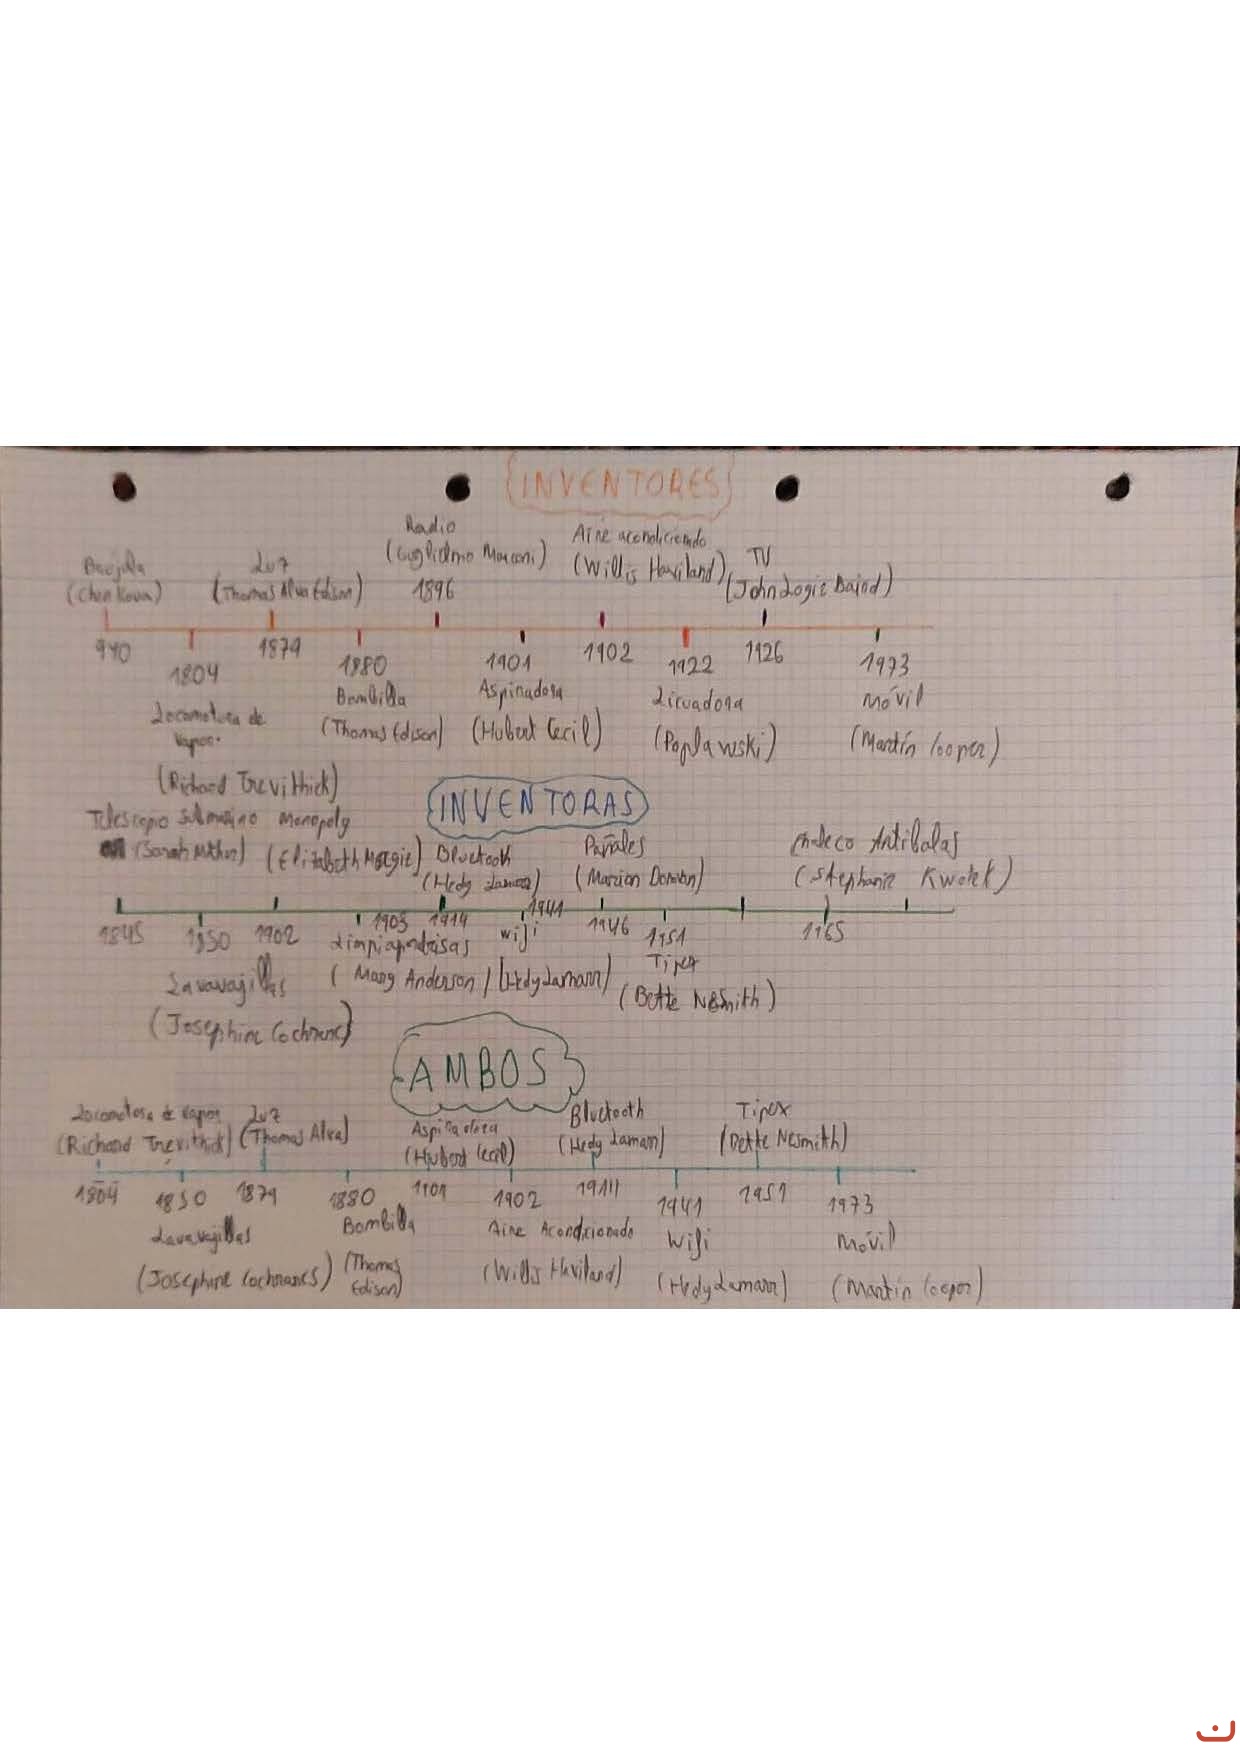 INVENTORES
Brújula
(Chen Koua)
940
1804
Locomotora de
vapor.
(Richard Trevithick)
Luz
(Thomas Alva Edison)
1879
1880
Bombilla
(Thomas Edison)
Radio
(Guglielmo Marconi)
1896
1901
Aspiradora
(Hubert Cecil)
Aire acondicionado
(Willis Haviland)
1902
1922
Licuadora
(Poplawski)
TV
(John Logie Baird)
1926
1973
Móvil
(Martín Cooper)
INVENTORAS
Telescopio submarino
(Sarah Mather)
1845
1850
Lavavajillas
(Josephine Cochranc)
Monopoly
(Elizabeth Magie)
1902
1903
Limpiaparabrisas
(Mary Anderson)
Bluetooth
(Hedy Lamarr)
1914
1941
Wifi
(Hedy Lamarr)
Pañales
(Marion Donovan)
1946
1951
Tipex
(Bette Nesmith)
Chaleco Antibalas
(Stephanie Kwolek)
1965
AMBOS
Locomotora de vapor
(Richard Trevithick)
1804
1850
Lavavajillas
(Josephine Cochrancs)
Luz
(Thomas Alva)
1879
1880
Bombilla
(Thomas
Edison)
Aspiradora
(Hubert Cecil)
1901
1902
Aire Acondicionado
(Willis Haviland)
Bluetooth
(Hedy Lamarr)
1914
1941
Wifi
(Hedy Lamarr)
Tipex
(Bette Nesmith)
1951
1973
Móvil
(Martín Cooper)